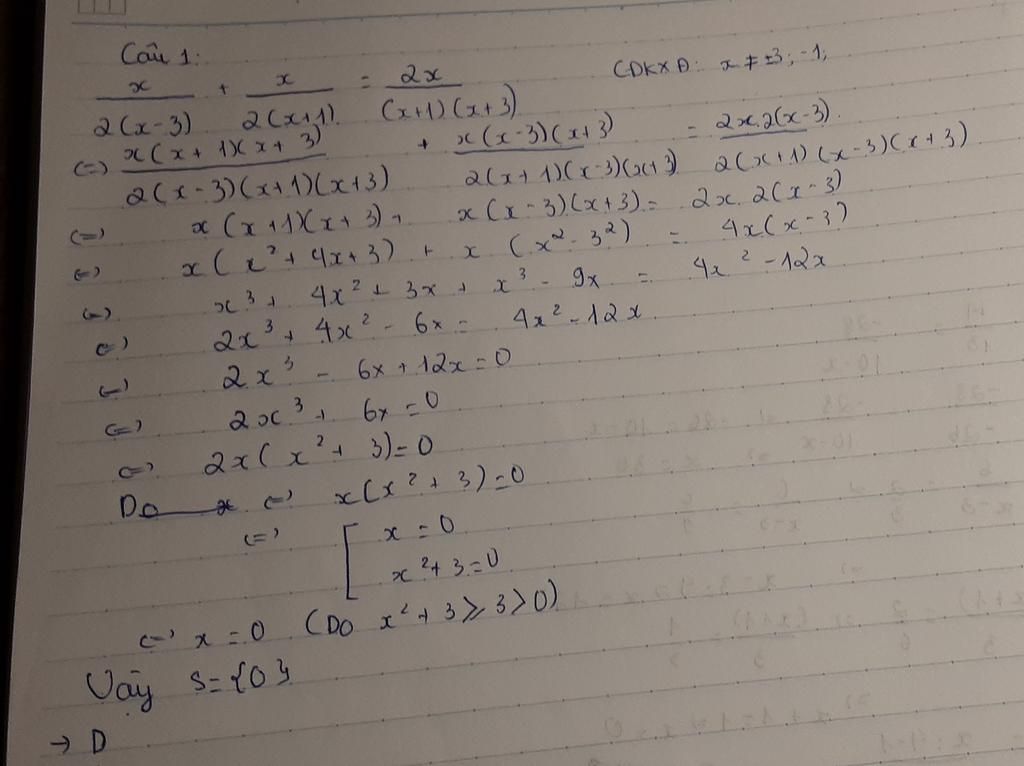 Câu 1:
x/2(x-3) + x/2(x+1) = 2x/(x+1)(x+3) CĐKXĐ: x ≠ ±3; -1,
(=) x(x+1)(x+3)/2(x-3)(x+1)(x+3) + x(x-3)(x+3)/2(x+1)(x-3)(x+3) = 2x.2(x-3)/2(x+1)(x-3)(x+3)
(=) x(x+1)(x+3) + x(x-3)(x+3) = 2x.2(x-3)
(=) x(x²+4x+3) + x(x²-3²) = 4x(x-3)
(=) x³+4x²+3x+x³-9x = 4x²-12x
(=) 2x³+4x²-6x = 4x²-12x
(=) 2x³-6x+12x=0
(=) 2x³+6x=0
(=) 2x(x²+3)=0
Do x (=) x(x²+3)=0
(=) [ x=0
x²+3=0
(=) x=0 (Do x²+3⩾3>0)
Vậy S={0}
→ D